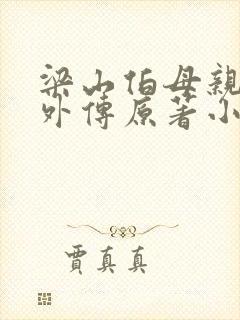 梁山伯母親
外傳原著小
賈真真